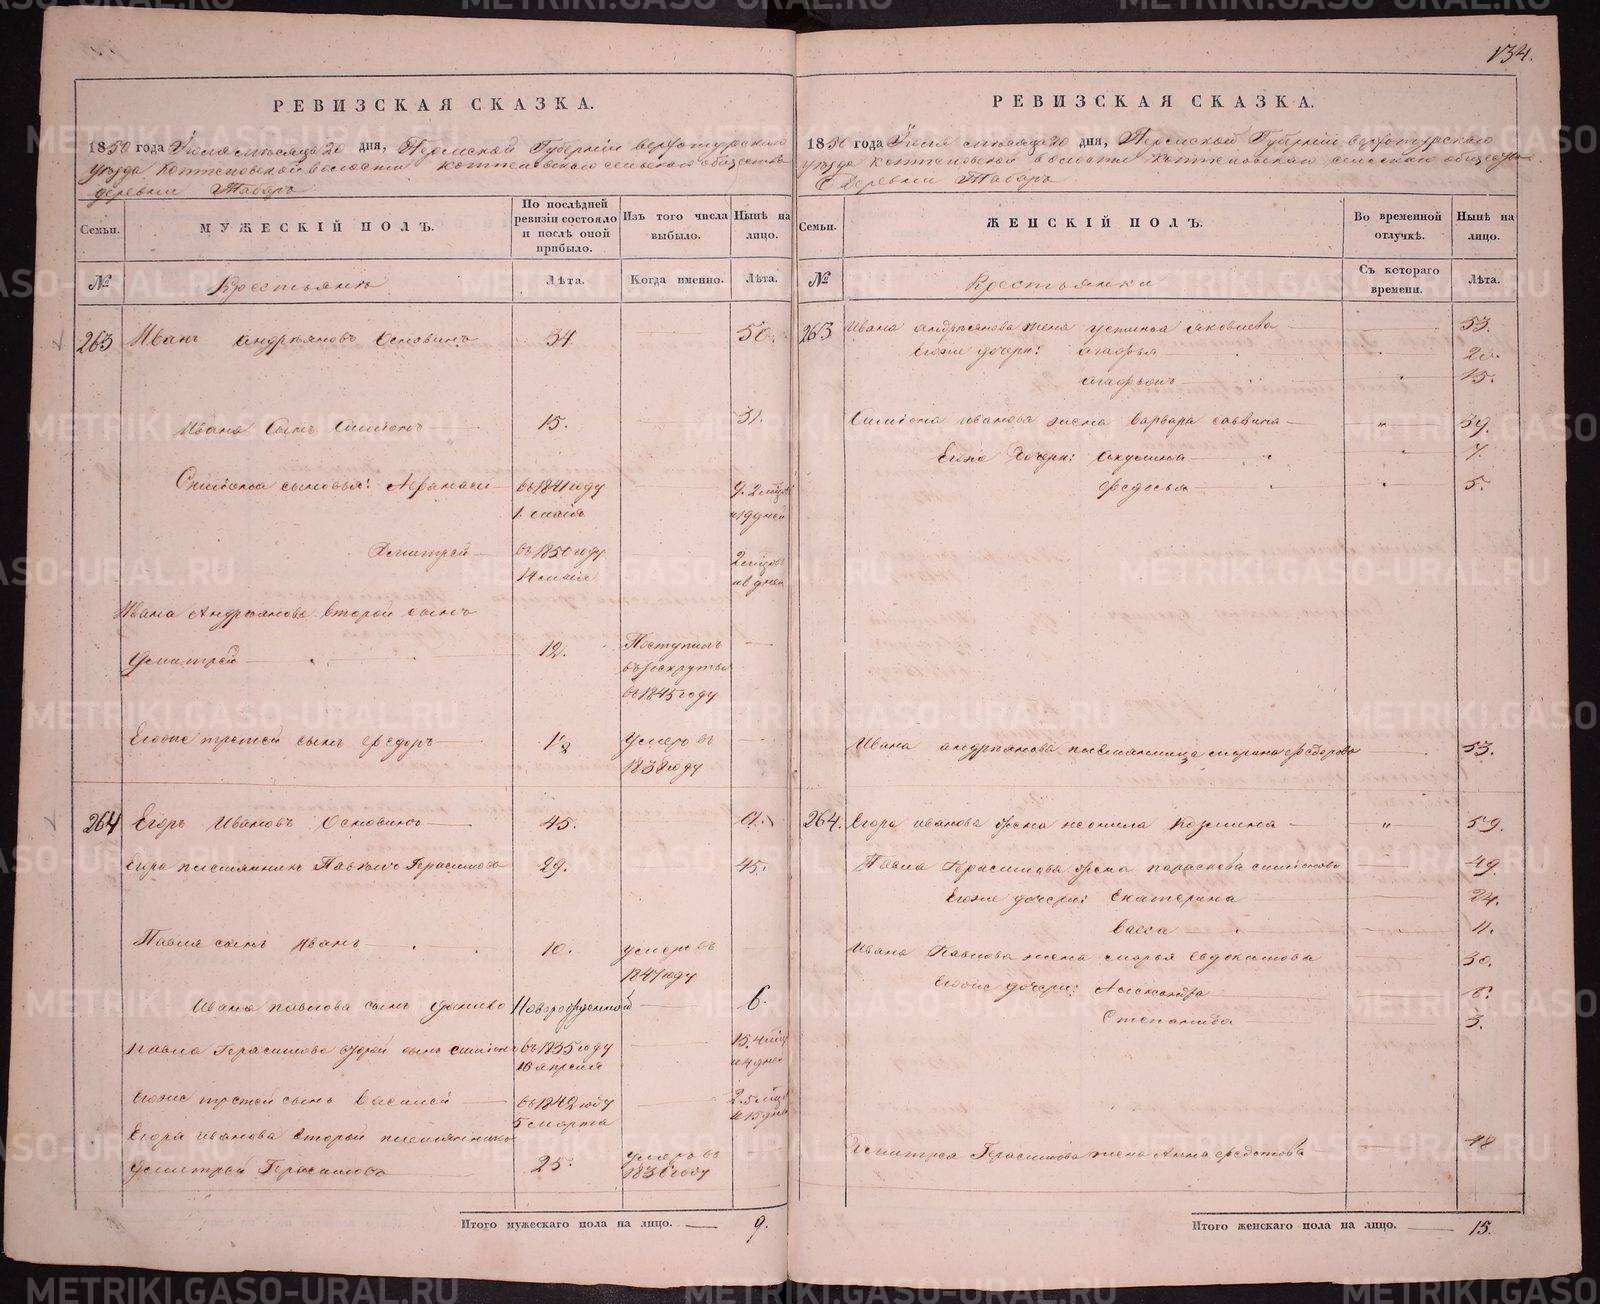 134.
РЕВИЗСКАЯ СКАЗКА.
1850 года Июля месяца 20 дня, Пермской Губернiи верхотурскаго
уезда Коптеловской волости Коптеловскаго сельскаго общества
деревни Табаръ
Семьи. МУЖЕСКIЙ ПОЛЪ. По последней ревизiи состояло и после оной прибыло. Изъ того числа выбыло. Ныне на лицо.
№ Крестьянъ Лета. Когда именно. Лета.
263 Иванъ андреяновъ Основинъ 34 50.
Ивана Сынъ Симiонъ 15. 31.
Симiона сыновья: Афанаси въ 1841 году 9. 2 мца
1. маiя и 19 дней
Дмитрей въ 1850 году 2 мца
14 маiя и 6 дней
Ивана Андреянова второй сынъ
Дмитрей 12. Поступилъ
въ рекруты
въ 1845 году
Егоже третей сынъ федоръ 1/2 умеръ въ
1838 году
264 Егоръ Ивановъ Основинъ 45.
Егора племянникъ Павелъ Герасимовъ 29. 45.
Павла сынъ Иванъ 10. умеръ въ
1847 году
Ивана павлова сынъ данило Новорожденной 6.
павла Герасимова второй сынъ симiонъ въ 1835 году 15. 4 мца
16 апреля и 4 дней
Егоже третей сынъ Василей въ 1842 году
5 марта и 15 дней
Егора иванова второй племянникъ
дмитрей Герасимовъ 25. умеръ въ
1836 году
Итого мужескаго пола на лицо. 9.
РЕВИЗСКАЯ СКАЗКА.
1850 года Июля месяца 20 дня, Пермской Губернiи верхотурскаго
уезда Коптеловской волости Коптеловскаго сельскаго общества
деревни Табаръ
Семьи. ЖЕНСКIЙ ПОЛЪ. Во временной отлучке. Ныне на лицо.
№ Крестьянки Съ котораго времени. Лета.
263 Ивана андреянова жена устинья яковлева 53.
Егоже дочери: агафья 20.
15.
Симiона иванова жена варвара саввина 39.
Егоже Дочери: Акулина 7.
федосья 5.
Ивана андреянова племянница марина федорова 53.
264. Егора иванова жена неонила Козмина 59.
Павла Герасимова жена параскева симiонова 49.
Егоже дочери: Екатерина 24.
Васса 11.
Ивана Павлова жена марья евдокимова 30.
Егоже дочери: Александра
Степанида 3.
дмитрея Герасимова жена Анна федотова 48
Итого женскаго пола на лицо. 15.
METRIKI.GASO-URAL.RU